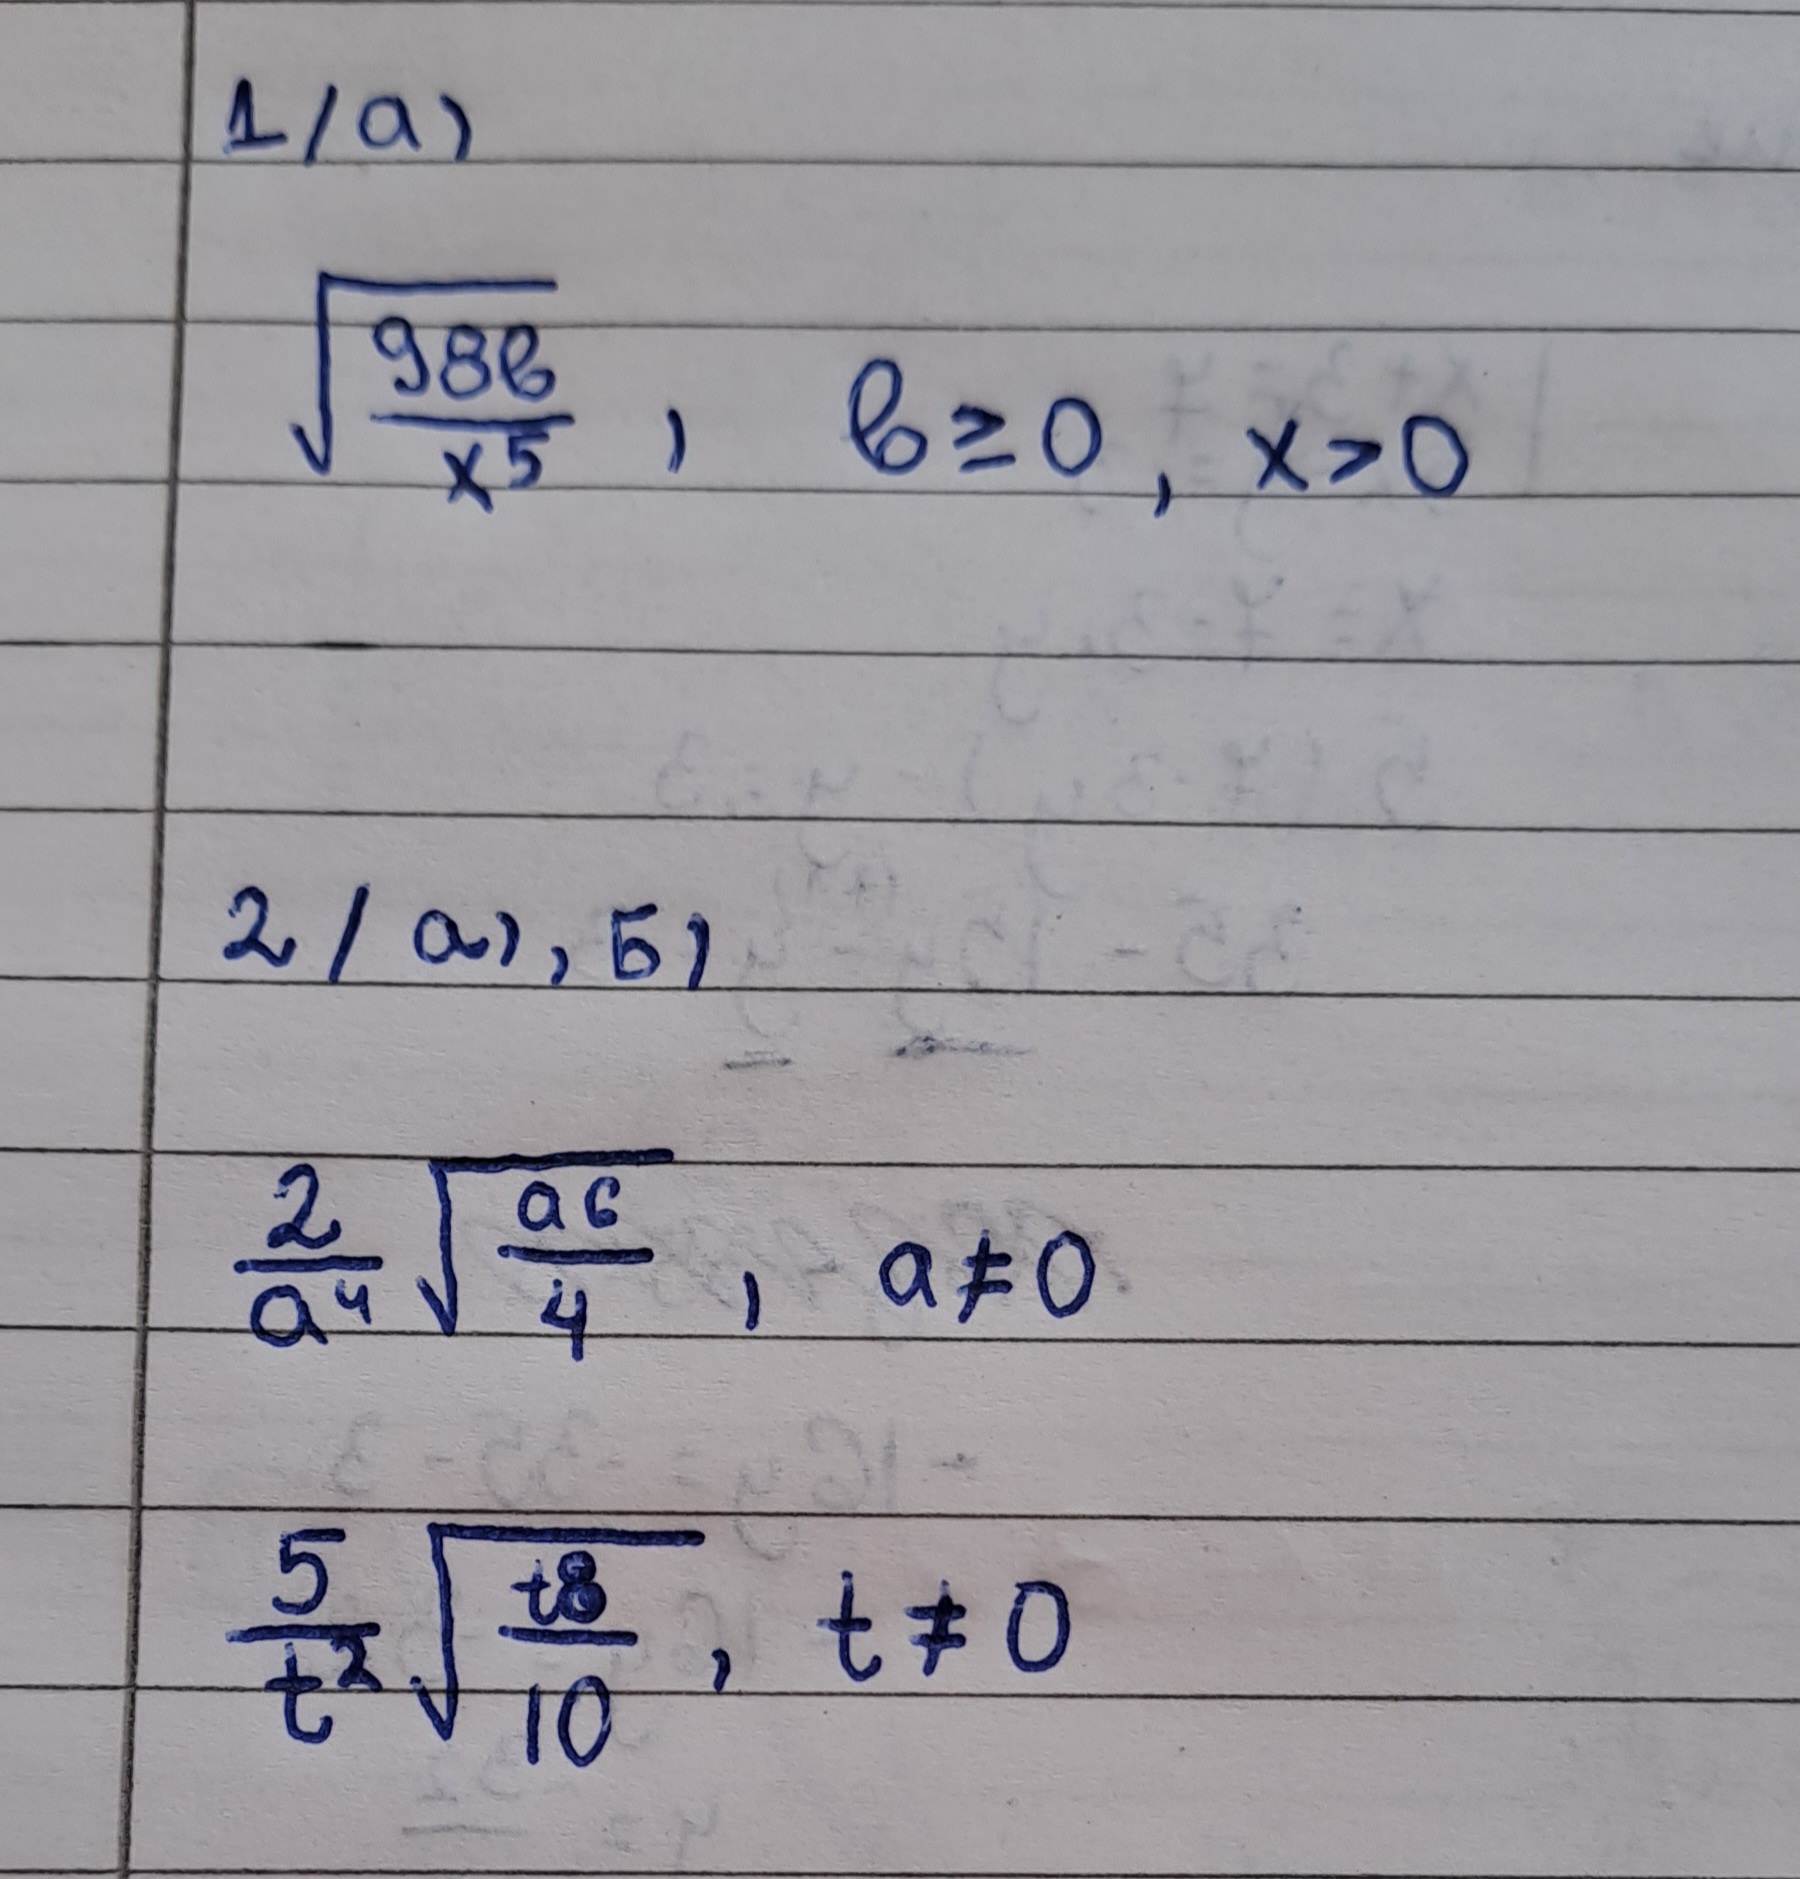 1/а)
√(98в/x⁵), в≥0, x>0
2/а), б)
2/a⁴ √(a⁶/4), a≠0
5/t² √(t⁸/10), t≠0